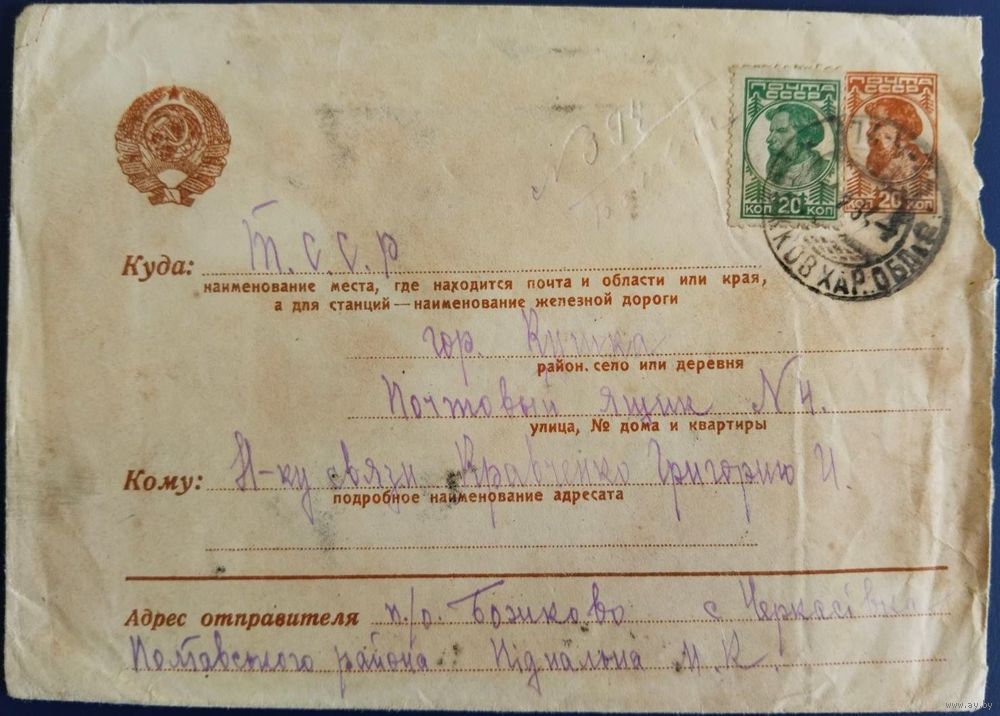 ПОЧТА СССР
КОП 20 КОП
ПОЧТА СССР
КОП 20 КОП
КОВ ХАР. ОБЛАС
В 94
Куда: Т.С.С.Р
наименование места, где находится почта и области или края,
а для станций—наименование железной дороги
гор. Кушка
район, село или деревня
Почтовый ящик N 4.
улица, № дома и квартиры
Кому: Н-ку связи Кравченко Григорию И.
подробное наименование адресата
Адрес отправителя п/о. Божково с Черкасівка
Полтавського района Підкальна М.К.
www.ay.by